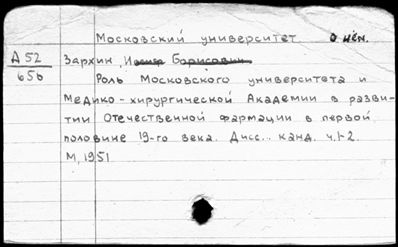 Московский университет о нём.
А 52 Зархин, И. Борисович
656 Роль Московского университета и
Медико-хирургической Академии в разви-
тии Отечественной фармации в первой
половине 19-го века. Дисс... канд. ч.1-2.
М, 1951